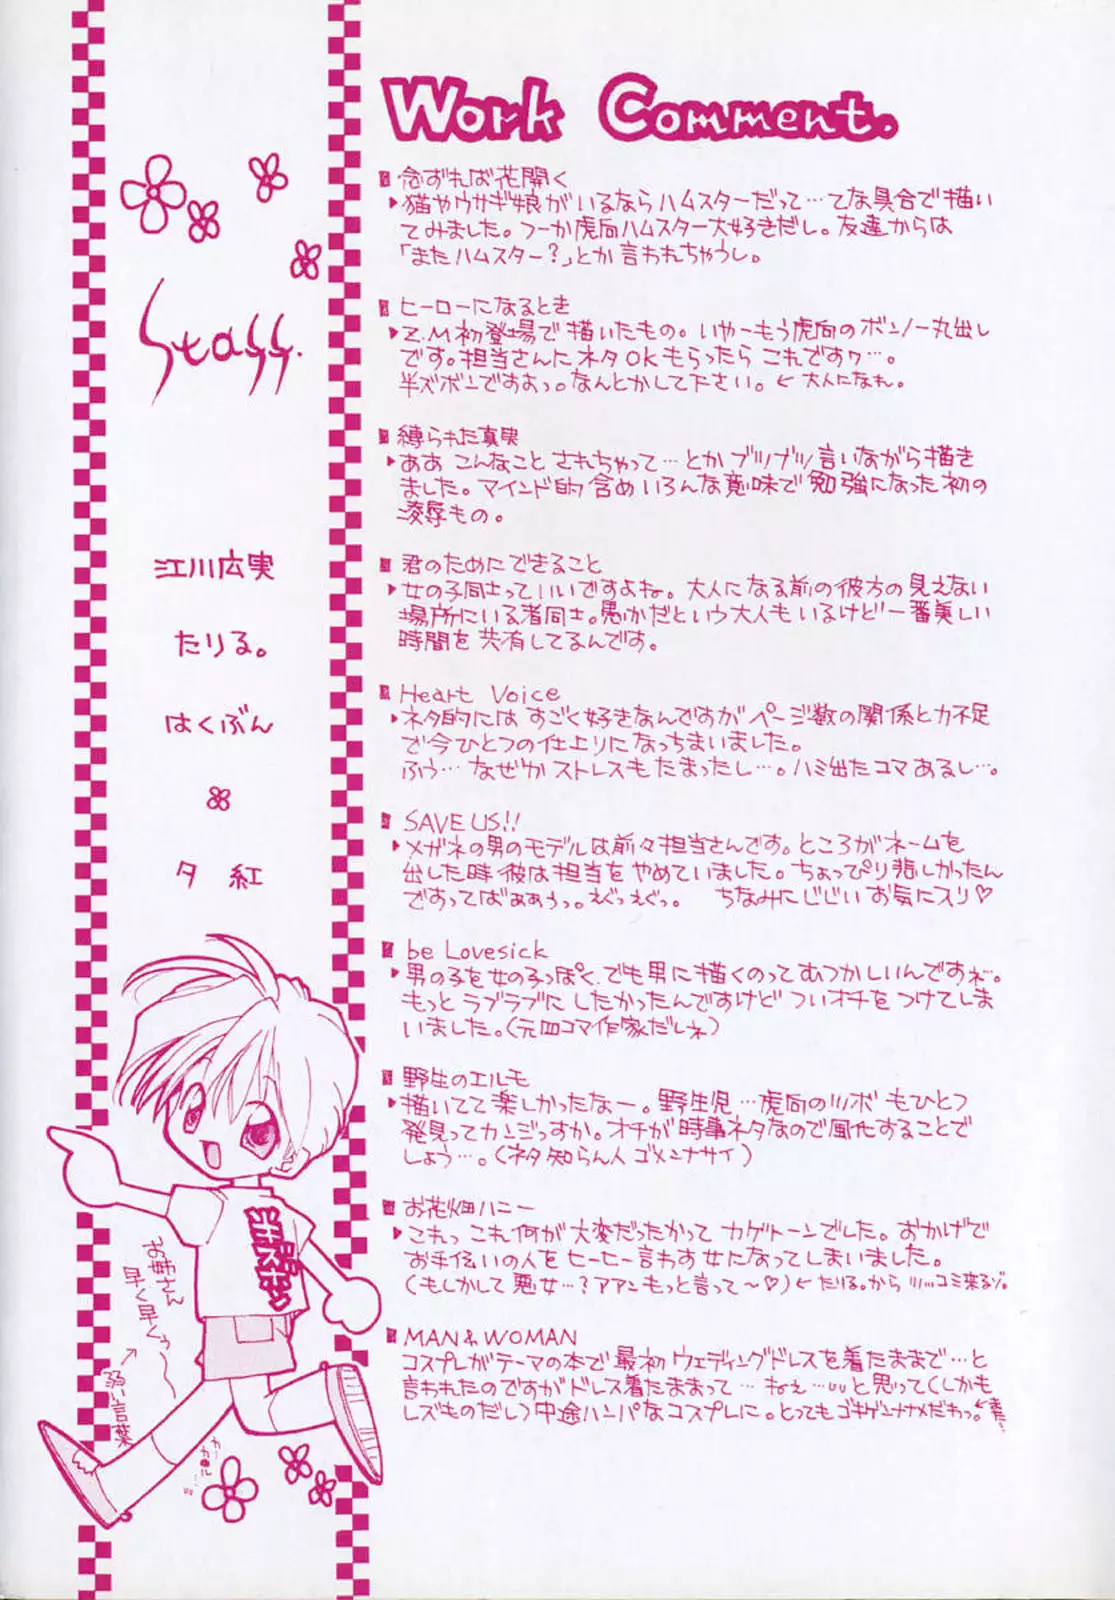 Work Comment.
念ずれば花開く
猫やウサギ娘がいるならハムスターだって…てな具合で描い
てみました。フーか虎向ハムスター大好きだし。友達からは
「またハムスター?」とか言われちゃうし。
ヒーローになるとき
Z.M初登場で描いたもの。いやーもう虎向のボンノー丸出し
です。担当さんにネタOKもらったらこれですヮ…。
半ズボンですよっ。なんとかして下さい。←大人になれ。
縛られた真実
ああ こんなこと されちゃって…とか ブツブツ言いながら描き
ました。マインド的含めいろんな意味で勉強になった初の
凌辱もの。
君のためにできること
女の子同士っていいですよね。大人になる前の彼方の見えない
場所にいる者同士。愚かだという大人もいるけど一番美しい
時間を共有してるんです。
Heart Voice
ネタ的にはすごく好きなんですがページ数の関係と力不足
で今ひとつの仕上りになっちまいました。
ふぅ…なぜかストレスもたまったし…。ハミ出たコマあるし…。
SAVE US!!
メガネの男のモデルは前々担当さんです。ところがネームを
出した時彼は担当をやめていました。ちょっぴり悲しかったん
ですってばぁぁぅっ。えぐっえぐっ。 ちなみにじじいお気にスリ♡
be Lovesick
男の子を女の子っぽく、でも男に描くのってむつかしいんですね。
もっとラブラブにしたかったんですけどついオチをつけてしま
いました。(元四コマ作家だしネ)
野生のエルモ
描いてて楽しかったなー。野生児…虎向のツボもひとつ
発見ってカンジっすか。オチが時事ネタなので風化することで
しょう…。(ネタ知らん人ゴメンナサイ)
お花畑ハニー
これっ これ何が大変だったかって カゲトーンでした。おかげで
お手伝いの人をヒーヒー言わす女になってしまいました。
(もしかして悪女…?アアンもっと言って〜♡)←たりる。からツッコミ来るゾ。
MAN & WOMAN
コスプレがテーマの本で最初ウェディングドレスを着たままで…と
言われたのですがドレス着たままって…ねぇ…と思って(しかも
レズものだし)中途ハンパなコスプレに。とってもゴキゲンナナメだわっ。
Staff.
江川広実
たりる。
はくぶん
夕 紅
お姉さん
早く早くぅ〜
弱い言葉